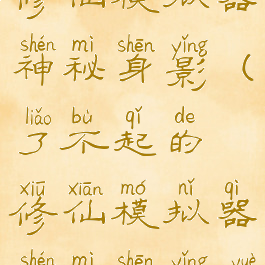 修仙模拟器
shén mì shēn yǐng
神秘身影（
liǎo bù qǐ de
了不起的
xiū xiān mó nǐ qì
修仙模拟器
shén mì shēn yǐng yuè